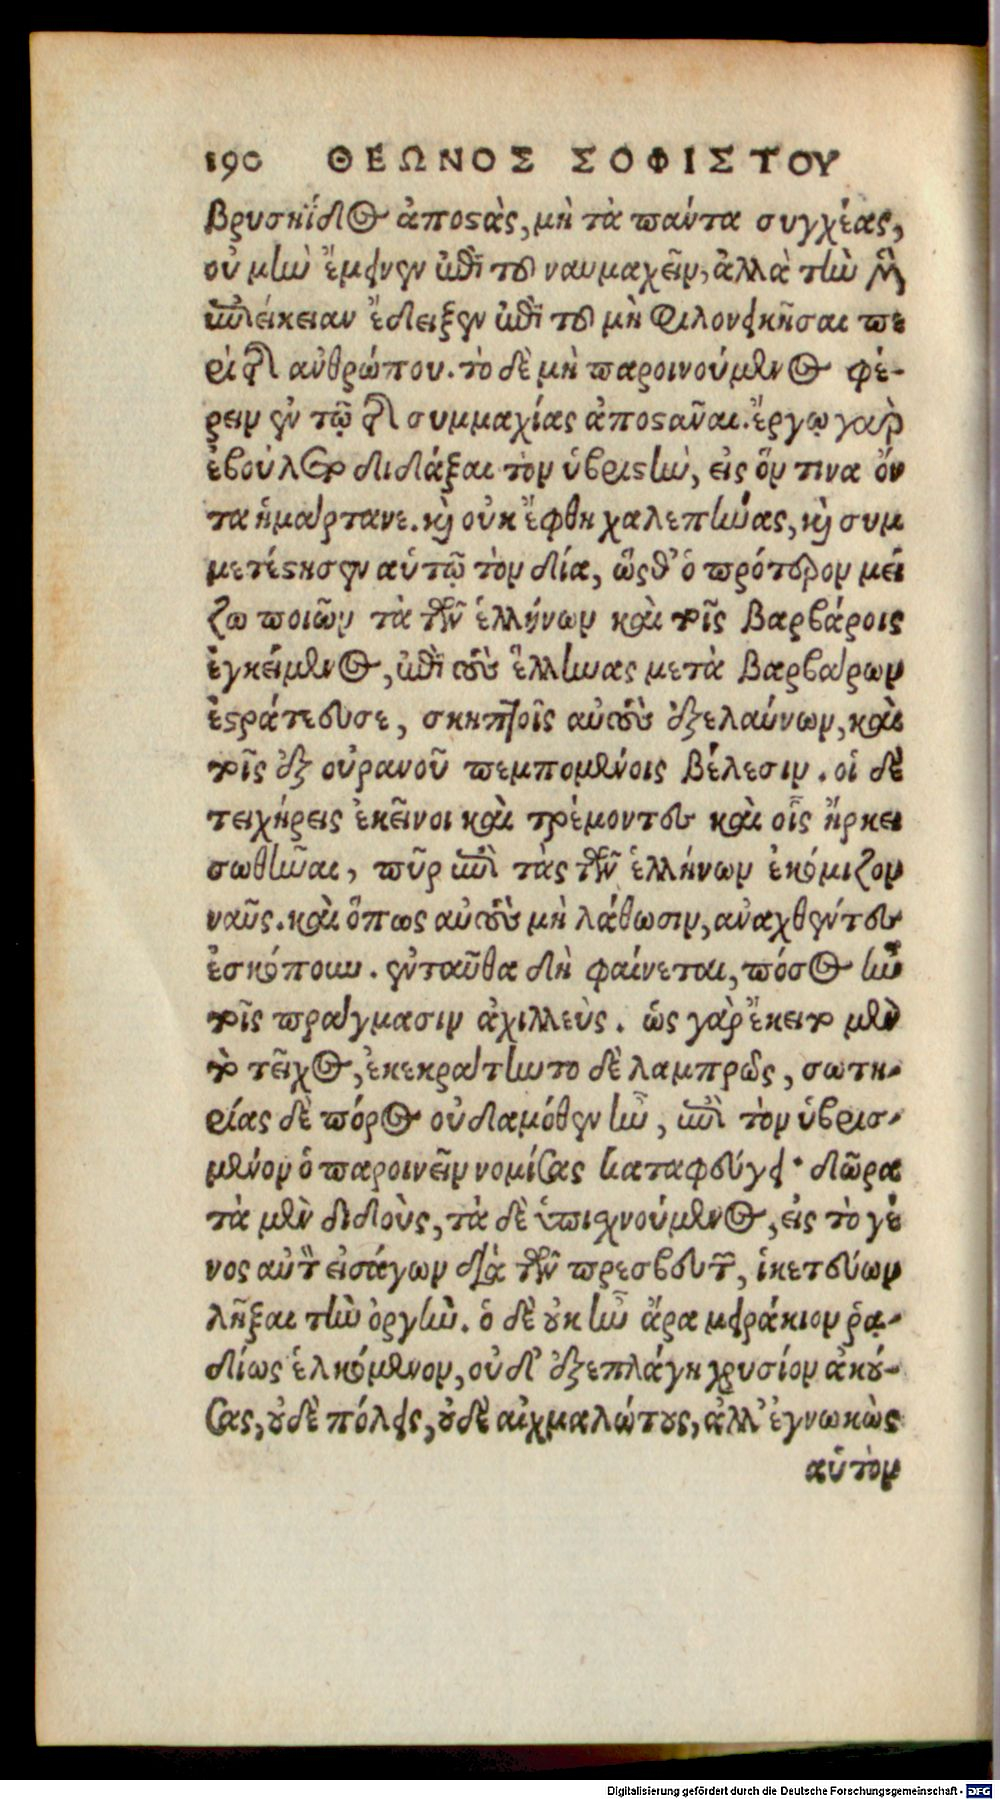 190 ΘΕΩΝΟΣ ΣΟΦΙΣΤΟΥ
βρυσηΐδος ἀποστὰς, μὴ τὰ πάντα συγχέας,
οὐ μὴν ἔμεινεν ἐπὶ τοῦ ναυμαχεῖν, ἀλλὰ τὴν μὲν
ἐπιείκειαν ἔδειξεν ἐπὶ τοῦ μὴ φιλονεικῆσαι πε
ρὶ τῆς ἀνθρώπου. τὸ δὲ μὴ παροινούμενος φέ-
ρειν ἐν τῷ τῆς συμμαχίας ἀποστᾶναι. ἔργῳ γὰρ
ἐβούλετο διδάξαι τὸν ὑβριστὴν, εἰς ὅν τινα ὄν
τα ἡμάρτανε. καὶ οὐκ ἔφθη χαλεπήνας, καὶ συμ
μετέστησεν αὑτῷ τὸν δία, ὥσθ' ὁ πρότερον μεί
ζω ποιῶν τὰ τῶν ἑλλήνων καὶ τοῖς βαρβάροις
ἐγκείμενος, ἐπὶ τοὺς ἕλληνας μετὰ βαρβάρων
ἐστράτευσε, σκηπτοῖς αὐτοὺς ἐξελαύνων, καὶ
τοῖς ἐξ οὐρανοῦ πεμπομένοις βέλεσιν. οἱ δὲ
τειχήρεις ἐκεῖνοι καὶ τρέμοντες καὶ οἷς ἤρκει
σωθῆναι, πῦρ ἐπὶ τὰς τῶν ἑλλήνων ἐκόμιζον
ναῦς. καὶ ὅπως αὐτοὺς μὴ λάθωσιν, ἀναχθέντες
ἐσκόπουν. ἐνταῦθα δὴ φαίνεται, πόσος ἦν
τοῖς πράγμασιν ἀχιλλεύς. ὡς γὰρ ἔκειτο μὲν
τὸ τεῖχος, ἐκεκράτηντο δὲ λαμπρῶς, σωτη-
ρίας δὲ πόρος οὐδαμόθεν ἦν, ἐπὶ τὸν ὑβρισ-
μένον ὁ παροινεῖν νομίσας καταφεύγει· δῶρα
τὰ μὲν διδοὺς, τὰ δὲ ὑπισχνούμενος, εἰς τὸ γέ
νος αὑτὸν εἰσάγων διὰ τῶν πρεσβευτῶν, ἱκετεύων
λῆξαι τὴν ὀργήν. ὁ δὲ οὐκ ἦν ἄρα μειράκιον ῥᾳ-
δίως ἑλκόμενον, οὐδ' ἐξεπλάγη χρυσίον ἀκού-
σας, οὐδὲ πόλεις, οὐδὲ αἰχμαλώτους, ἀλλ' ἐγνωκὼς
αὑτὸν
Digitalisierung gefördert durch die Deutsche Forschungsgemeinschaft - DFG